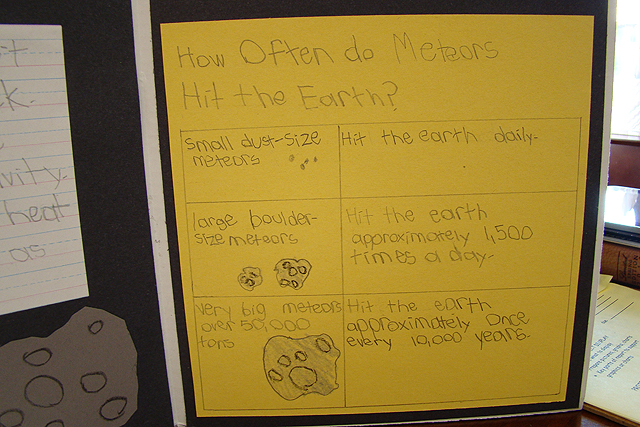 How Often do Meteors
Hit the Earth?
small dust-size
meteors
Hit the earth daily.
large boulder-
size meteors
Hit the earth
approximately 1,500
times a day.
very big meteors
over 50,000
tons
Hit the earth
approximately Once
every 10,000 years.
vity
heat
as